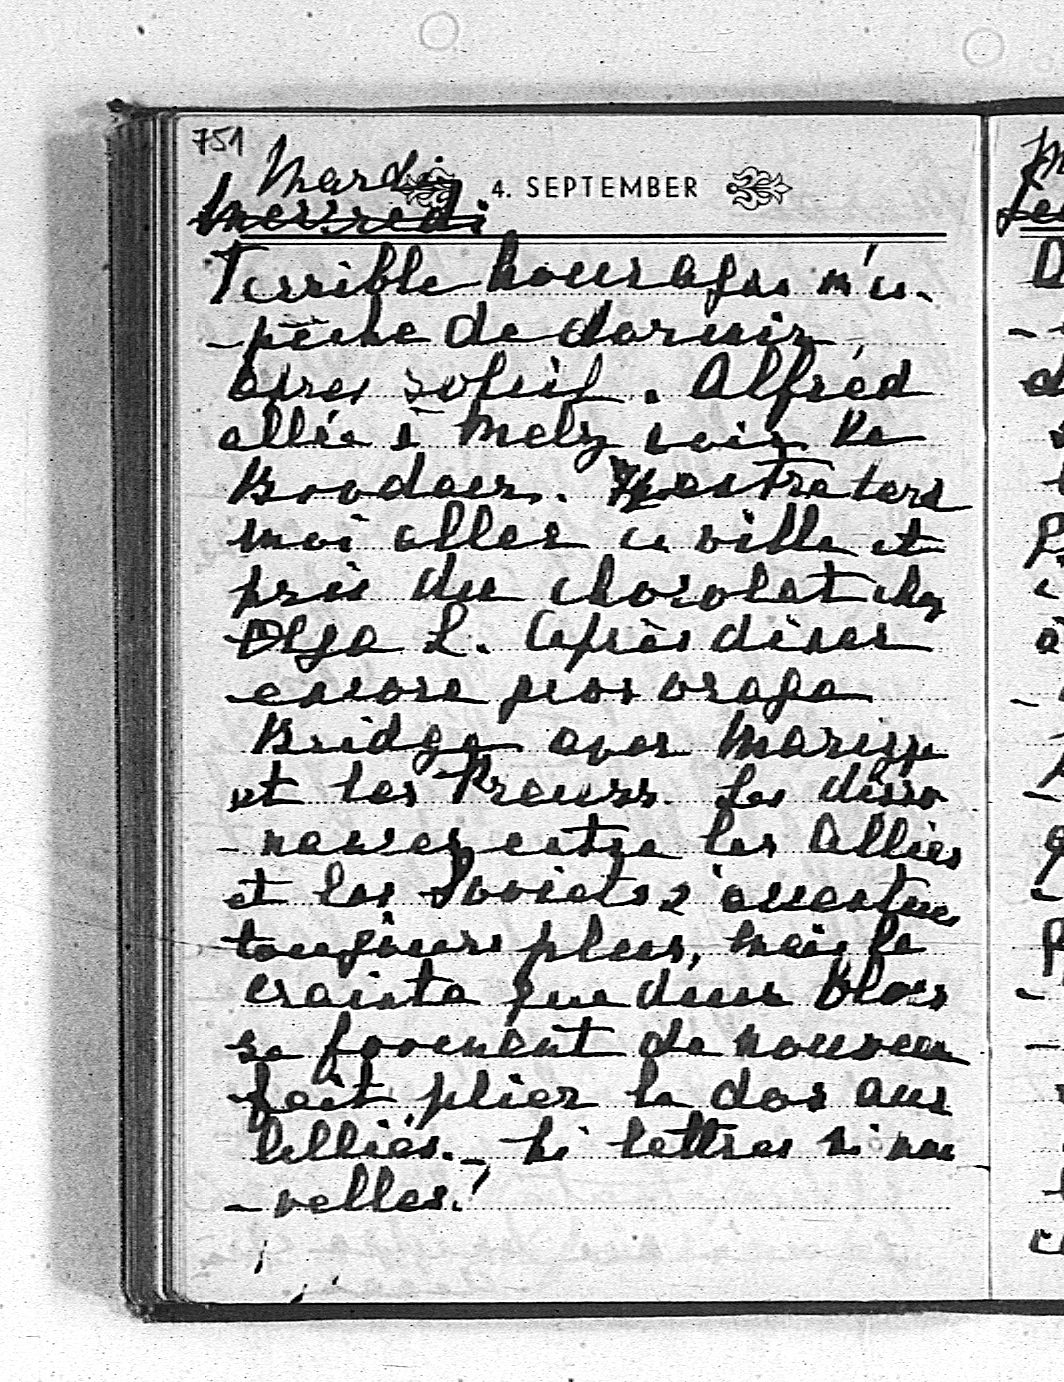 751
Mardi
Mercredi
4. SEPTEMBER
Terrible houragan m'em-
-pêche de dormir,
Alfred
allée à Melz voir De
Boodoer.
moi aller en ville et
pris du chocolat chez
Olga L. Après diner
encore gros orage
Bridge avec Marizza
et les Preuss. Les disso
-nances entre les Alliés
et les Soviets s'accentue
toujours plus, mais la
crainte que deux blocs
se forment de nouveau
fait plier le dos aux
Alliés. - Ni lettres ni nou
-velles!